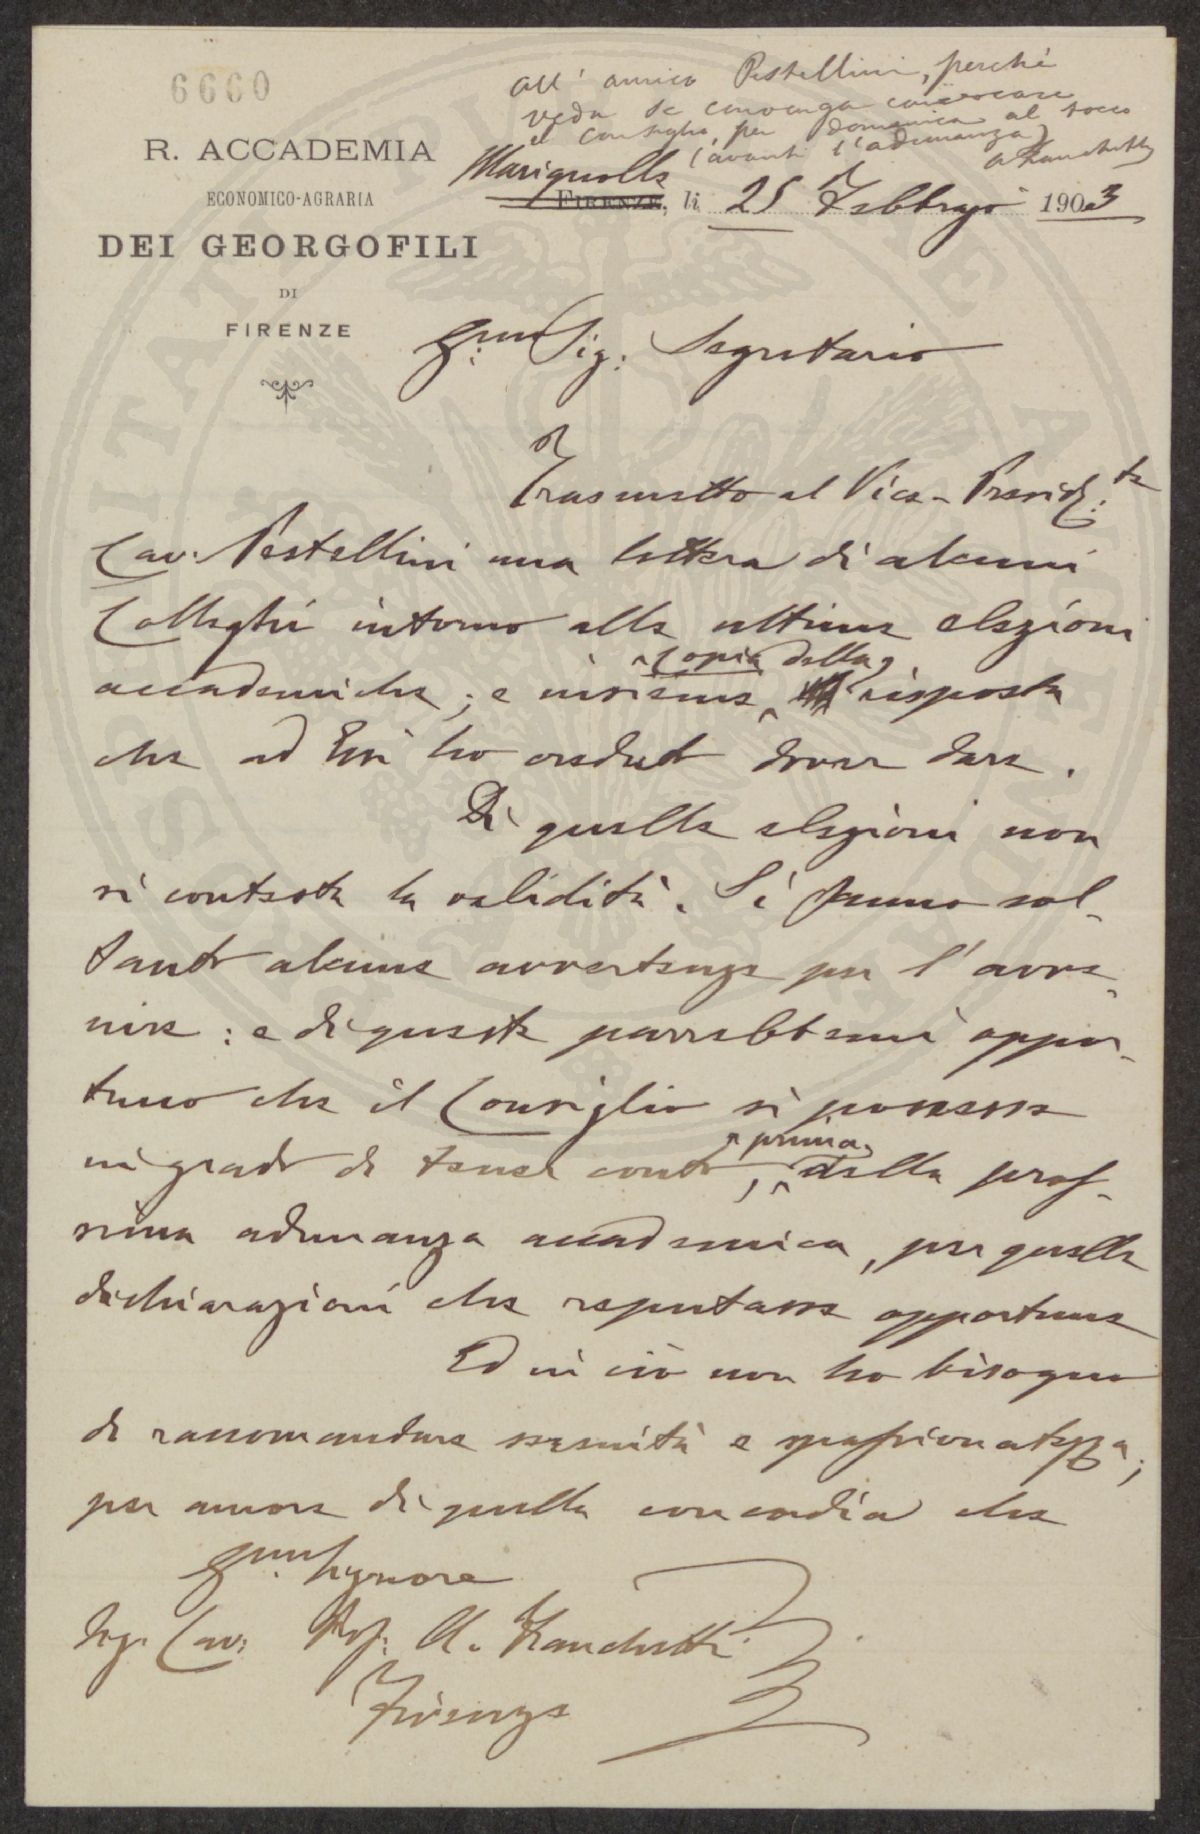 6660
all' amico Pestellini, perchè
veda se convenga convocare
il Consiglio, per domenica al tocco
(avanti l'adunanza)
R. ACCADEMIA
ECONOMICO-AGRARIA
DEI GEORGOFILI
DI
FIRENZE
Marignolle
FIRENZE, li 25 Febbrajo 1903
Sig: Segretario
Trasmetto al Vice-Presid:te
Cav. Pestellini una lettera di alcuni
Colleghi intorno alle ultime elezioni
accademiche; e insieme copia della risposta
che ad Essi ho creduto dover dare.
Di quelle elezioni non
si contesta la validità. Si fanno sol-
tanto alcune avvertenze per l'avve-
nire: e di queste parrebbemi oppor-
tuno che il Consiglio si ponesse
in grado di tener conto, prima della pros-
sima adunanza accademica, per quelle
dichiarazioni che reputasse opportune
Ed in ciò non ho bisogno
di raccomandare serenità e spassionatezza;
per amore di quella concordia che
Signore
Ing. Cav: Prof: A. Franchetti
Firenze